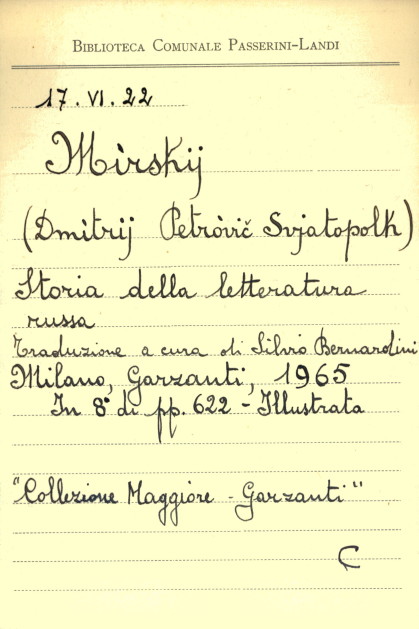 BIBLIOTECA COMUNALE PASSERINI-LANDI
17.VI.22
Mìrskij
(Dmìtrij Petròvič Svjatopolk)
Storia della letteratura
russa
Traduzione a cura di Silvio Bernardini
Milano, Garzanti, 1965
In 8° di pp. 622 - Illustrata
"Collezione Maggiore - Garzanti"
C